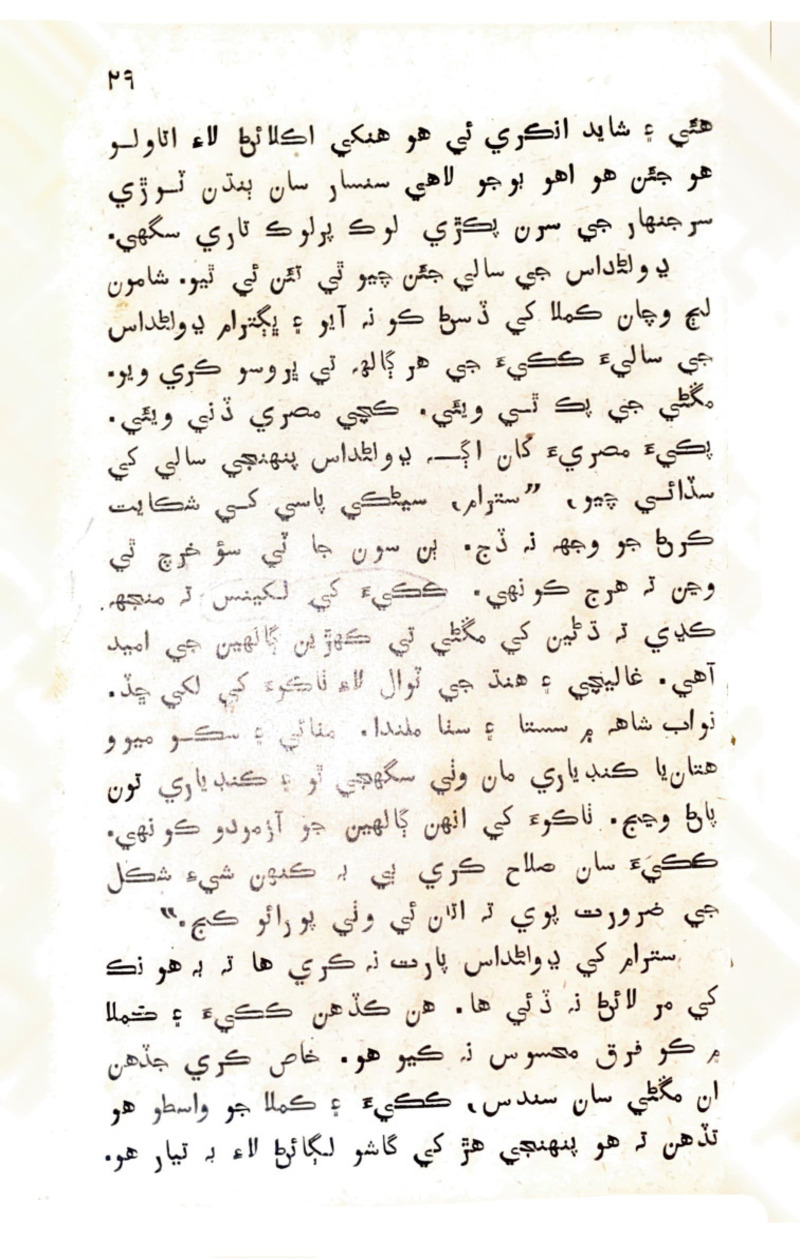 ٢٩
هئي ۽ شايد انڪري ئي هو هنکي اڪلائڻ لاءِ اتاولو
هو جئن هو اهو ٻوجو لاهي سنسار سان ٻنڌن ٽوڙي
سرجنهار جي سرن پڪڙي لوڪ پرلوڪ تاري سگهي.
ڀوالڻداس جي سالي جئن چيو ٿي تئن ئي ٿيو. شامون
لڀ وچان ڪملا کي ڏسڻ ڪو نہ آيو ۽ ڀڳترام
جي ساليءَ ڪڪيءَ جي هر ڳالهہ تي ڀروسو ڪري ويو.
مڱڻي جي پڪ ٿي ويئي. ڪچي مصري ڏني ويئي.
پڪيءَ مصريءَ کان اڳ پنهنجي سالي کي
سڏائي چيو، ”سترام، سيڻڪي پاسي ڪي شڪايت
ڪرڻ جو وجهہ نہ ڏج. ٻن سون جا ٽي سؤ خرچ ٿي
وڃن تہ هرج ڪونهي. ڪڪيءَ کي لکينس تہ منجهہ
ڪڍي تہ ڌڻين کي مڱڻي تي ڪهڙين ڳالهين جي اميد
آهي. غاليچي ۽ هنڌ جي ٽوال لاءِ ٺاڪوءَ کي لکي ڇڏ.
نواب شاهہ ۾ سستا ۽ سٺا ملندا. مٺائي ۽ سڪو ميوو
هتان يا ڪنڊياري مان وٺي سگهجي ٿو ۽ ڪنڊياري تون
پاڻ وڃج. ٺاڪوءَ کي انهن ڳالهين جو آزمودو ڪونهي.
ڪڪيءَ سان صلاح ڪري ٻي بہ ڪنهن شيءِ شڪل
جي ضرورت پوي تہ اتان ئي وٺي پورائو ڪج.“
سترام کي پارت نہ ڪري ها تہ بہ هو نڪ
کي مر لائڻ نہ ڏئي ها. هن ڪڏهن ڪڪيءَ ۽ ڪملا
۾ ڪو فرق محسوس نہ ڪيو هو. خاص ڪري جڏهن
ان مڱڻي سان سندس، ڪڪيءَ ۽ ڪملا جو واسطو هو
تڏهن تہ هو پنهنجي هڙ کي گاشو لڳائڻ لاءِ بہ تيار هو.